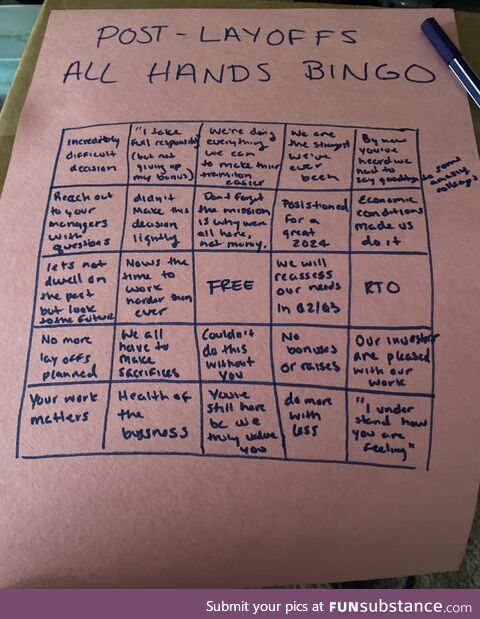 POST-LAYOFFS
ALL HANDS BINGO
Incredibly
difficult
decision
"I take
full responsibility
(but not
giving up
my bonus)
We're doing
everything
we can
to make their
transition
easier
We are
the strongest
we've
ever
been
By now
you've
heard we
had to
say goodbye
to some
amazing
colleagues
Reach out
to your
managers
with
questions
didn't
make this
decision
lightly
Don't forget
the mission
is why we're
all here,
not money.
Posistioned
for a
great
2024
Economic
conditions
made us
do it
lets not
dwell on
the past
but look
to the future
Nows the
time to
work
harder than
ever
FREE
We will
reassess
our needs
in Q2/Q3
RTO
No more
lay offs
planned
We all
have to
make
sacrifices
Couldn't
do this
without
you
No
bonuses
or raises
Our investors
are pleased
with our
work
Your work
matters
Health of
the
bussness
You're
still here
bc we
truly value
you
do more
with
less
"I under
stand how
you are
feeling"
Submit your pics at FUNsubstance.com